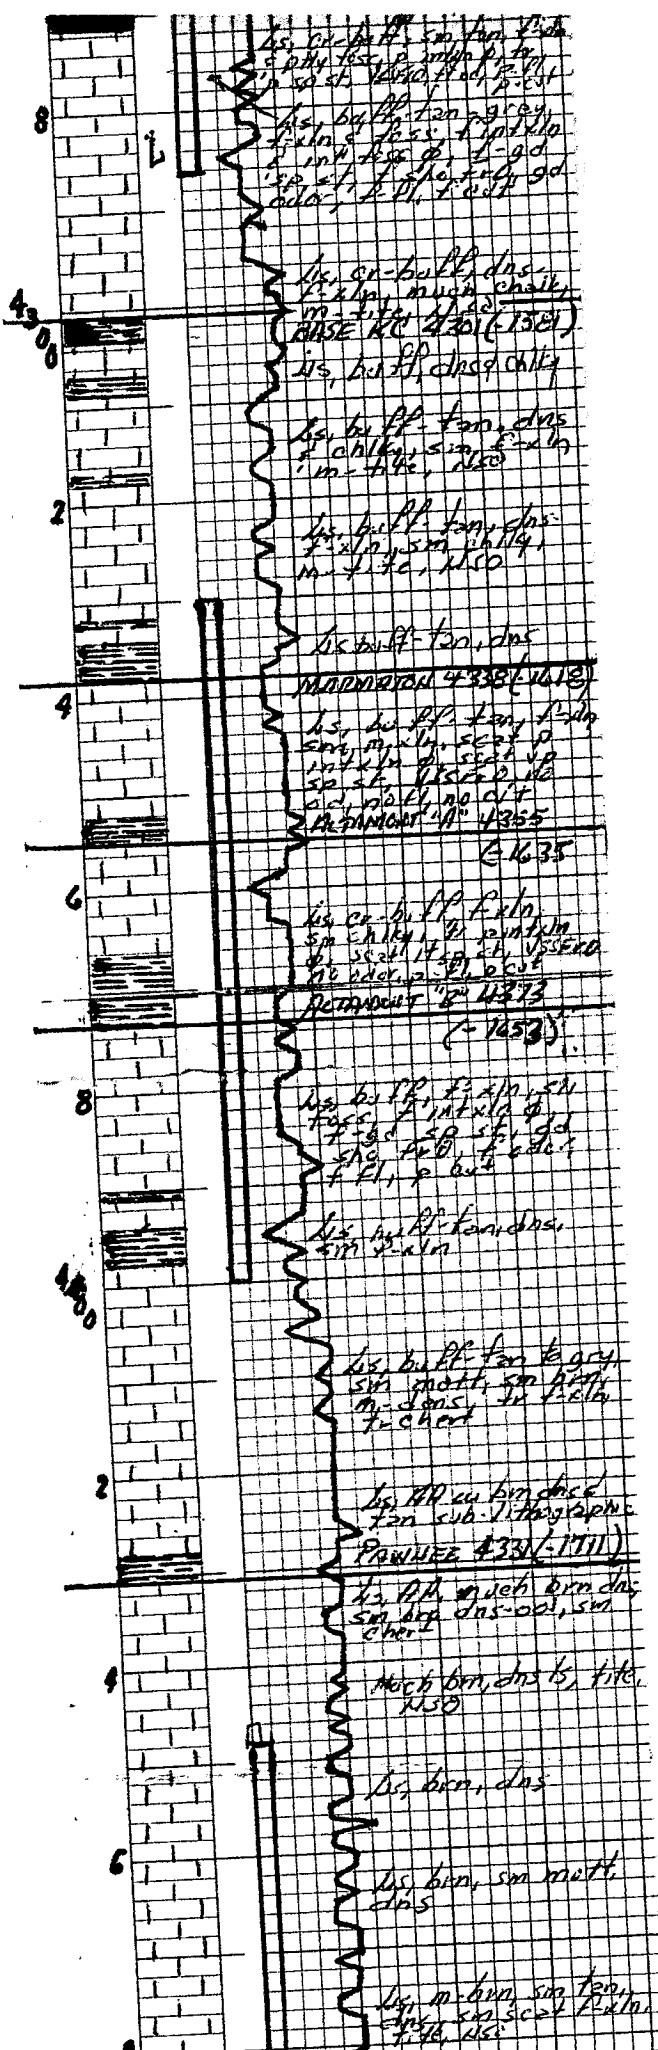 Ls, cr-buff, sm tan, f-xln
sp st,
8
Ls, buff-tan-grey,
f-xln foss, f intxln
& int foss ϕ, f-gd
sp st, f sho fro, gd
odor, f-fl, f cut
Ls, cr-buff, dns-
f-xln, much chalk,
m-tite,
4300
BASE KC 4301(-1581)
Ls, buff, dns & chlky
Ls, buff-tan, dns
& chlky, sm f-xln
m-tite, NSO
2
Ls, buff-tan, dns-
f-xln, sm chlky,
m-tite, NSO
Ls buff-tan, dns
MARMATON 4338(-1618)
4
Ls, buff-tan, f-xln
sm m-xln, scat p
intxln ϕ, scat vp
sp st, no
od, no fl, no cut
ALTAMONT "A" 4355
(-1635
6
Ls, cr-buff f-xln
sm chlky, intxln
ϕ, scat lt sp st, VSSFRO
no odor, p-fl, p cut
ALTAMONT "B" 4373
(-1653)
8
Ls, buff, f-xln, sli
foss, f intxln ϕ,
f-gd sp st, gd
sho fro, f odor,
f fl, p cut
Ls, buff-tan, dns,
sm f-xln
4400
Ls, buff-tan to gry
sm mott, sm brn,
m-dns, tr f-xln,
tr chert
2
Ls, AA w brn dns &
tan sub-lithographic
PAWNEE 4331(-1711)
Ls, AA, much brn dns,
sm brn dns-ool, sm
chert
4
Much brn, dns ls, tite,
NSO
Ls, brn, dns
6
Ls, brn, sm mott,
dns
Ls, m-brn, sm tan,
dns, sm scat f-xln,
tite, NSO